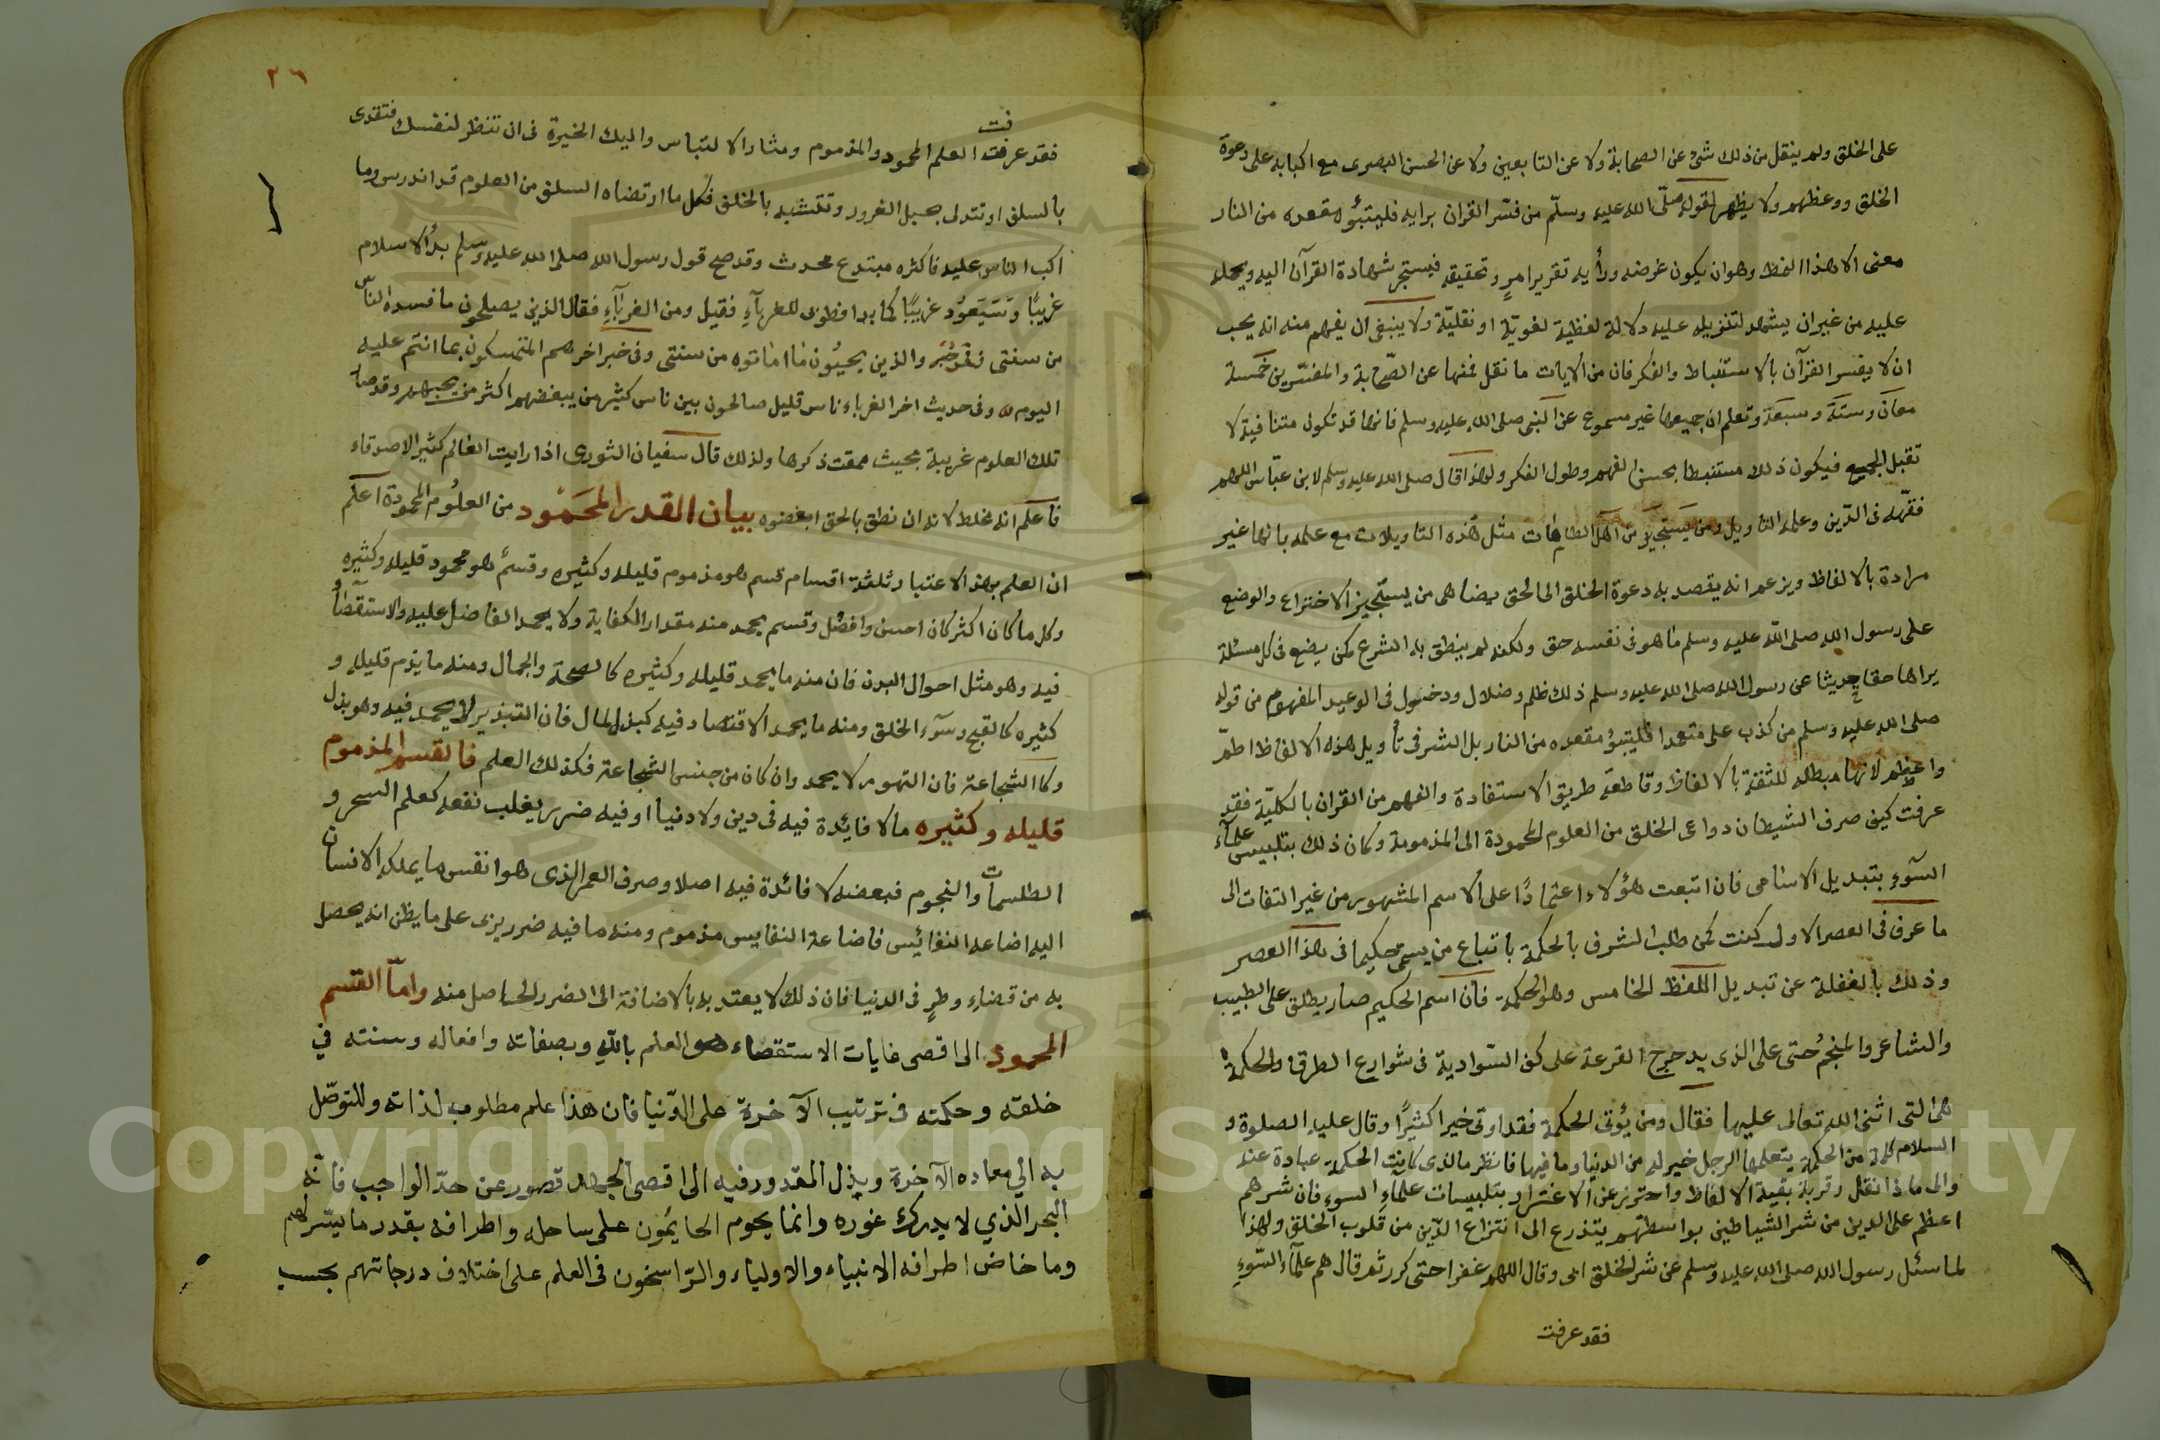 على الخلق ولم ينقل من ذلك شئ عن الصحابة ولا عن التابعين ولا عن الحسن البصرى مع اكبابه على دعوة
الخلق ووعظهم ولا يظهر لقوله صلى الله عليه وسلّم من فسّر القران برايه فليتبوّء مقعده من النار
معنى الا هذا النمط وهو ان يكون غرضه ورأيه تقرير امرٍ وتحقيقه فيستجر شهادة القرآن اليه ويحمله
عليه من غير ان يشهد لتنزيله عليه دلالة لفظية لغويّة او نقليّة ولا ينبغى ان يفهم منه انه يجب
ان لا يفسر القرآن بالاستنباط والفكر فان من الايات ما نقل فيها عن الصّحابة والمفسّرين خمسة
معان وستّة وسبعة وتعلم ان جميعها غير مسموع عن النبى صلى الله عليه وسلم فانها قد تكون متنافية لا
تقبل الجمع فيكون ذلك مستنبطا بحسن الفهم وطول الفكر ولهذا قال صلى الله عليه وسلم لابن عبّاس اللهم
فقّهه فى الدّين وعلمه التاويل ومن يستجيز من اهل الطامات مثل هذه التاويلات مع علمه بانها غير
مرادة بالالفاظ ويزعم انه يقصد به دعوة الخلق الى الحق يضاهى من يستجيز الاختراع والوضع
على رسول الله صلى الله عليه وسلم ما هو فى نفسه حق ولكنه لم ينطق به الشرع كمن يضع فى كل مسئلة
يراها حقا حديثا عن رسول الله صلى الله عليه وسلم ذلك ظلم وضلال ودخول فى الوعيد المفهوم من قوله
صلى الله عليه وسلم من كذب على متعمدا فليتبوّء مقعده من النار بل الشر فى تأويل هذه الالفاظ اطمّ
واعظم لانها مبطلة للثقة بالالفاظ وقاطعة طريق الاستفادة والفهم من القران بالكليّة فقد
عرفت كيف صرف الشيطان دواعى الخلق من العلوم المحمودة الى المذمومة وكان ذلك بتلبيس علمآء
السّوء بتبديل الاسامى فان اتبعت هؤلاء اعتمادًا على الاسم المشهور من غير التفات الى
ما عرف فى العصر الاول كنت كمن طلب الشرف بالحكمة باتباع من يسمى حكيما فى هذا العصر
وذلك بالغفلة عن تبديل اللفظ الخامس وهو الحكمة فان اسم الحكيم صار يطلق على الطبيب
والشاعر والمنجم حتى على الذى يدحرج القرعة على كف السّوادية فى شوارع الطرق والحكمة
هى التى اثنى الله تعالى عليها فقال ومن يؤتى الحكمة فقد اوتى خيرا كثيرًا وقال عليه الصلوة و
السلام كلمة من الحكمة يتعلمها الرجل خير له من الدنيا وما فيها فانظر ما الذى كانت الحكمة عبادة عنه
والى ما ذا نقل وقس به بقية الالفاظ واحترز عن الاغترار بتلبيسات علماء السوء فان شرهم
اعظم على الدين من شر الشياطين بواسطتهم يتذرع الى انتزاع الدّين من قلوب الخلق ولهذا
لما سئل رسول الله صلى الله عليه وسلم عن شر الخلق ابى وقال اللهم غفرا حتى كرر ثم قال هم علمآء السّوء
فقد عرفت
٢٦
فت
فقد عرفت العلم المحمود والمذموم ومثار الالتباس واليك الخيرة فى ان تنظر لنفسك فتقتدى
بالسلف او تتدلى بحبل الغرور وتتشبه بالخلف فكل ما ارتضاه السلف من العلوم قد اندرس وما
اكب الناس عليه فاكثره مبتدع محدث وقد صح قول رسول الله صلى الله عليه وسلم بدأ الاسلام
غريبًا وسيعود غريبًا كما بدا فطوبى للغربآءِ فقيل ومن الغربآءِ فقال الذين يصلحون ما فسده الناس
من سنتى والذين يحيون ما اماتوه من سنتى وفى خبر اخر هم المتمسكون بما انتم عليه
اليوم وفى حديث اخر الغرباء ناس قليل صالحون بين ناس كثير من يبغضهم اكثر من يحبهم وقد صار
تلك العلوم غريبة بحيث يمقت ذكرها ولذلك قال سفيان الثورى اذا رايت العالم كثير الاصدقاء
فاعلم انه مخلط لانه ان نطق بالحق ابغضوه بيان القدر المحمود من العلوم المحمودة اعلم
ان العلم بهذا الاعتبار ثلثة اقسام قسم هو مذموم قليله وكثيره وقسم هو محمود قليله وكثيره
وكل ما كان اكثر كان احسن وافضل وقسم يحمد منه مقدار الكفاية ولا يحمد الفاضل عليه والاستقصآء
فيه وهو مثل احوال البدن فان منه ما يحمد قليله وكثيره كالصحة والجمال ومنه ما يذم قليله و
كثيره كالقبح وسوء الخلق ومنه ما يحمد الاقتصاد فيه كبذل المال فان التبذير لا يحمد فيه وهو بذل
وكالشجاعة فان التهور لا يحمد وان كان من جنس الشجاعة فكذلك العلم فالقسم المذموم
قليله وكثيره ما لا فايدة فيه فى دين ولا دنيا او فيه ضرر يغلب نفعه كعلم السحر و
الطلسمات والنجوم فبعضه لا فائدة فيه اصلا وصرف العمر الذى هو انفس ما يملكه الانسان
اليه اضاعه النفائس فاضاعة النفايس مذموم ومنه ما فيه ضرر يزى على ما يظن انه يحصل
به من قضاء وطرٍ فى الدنيا فان ذلك لا يعتد به بالاضافة الى الضرر الحاصل منه وامّا القسم
المحمود الى اقصى غايات الاستقصاء هو العلم بالله وبصفاته وافعاله وسنته في
خلقه وحكمته فى ترتيب الآخرة على الدّنيا فان هذا علم مطلوب لذاته وللتوصّل
به الي معاده الآخرة وبذل المقدور فيه الى اقصى الجهد قصور عن حدّ الواجب فانّه
البحر الذي لا يدرك غوره وانما يحوم الحايمون على ساحله واطرافه بقدر ما يسّر لهم
وما خاض اطرافه الانبياء والاولياء والرّاسخون فى العلم على اختلاف درجاتهم بحسب
Copyright © King Saud University
1957